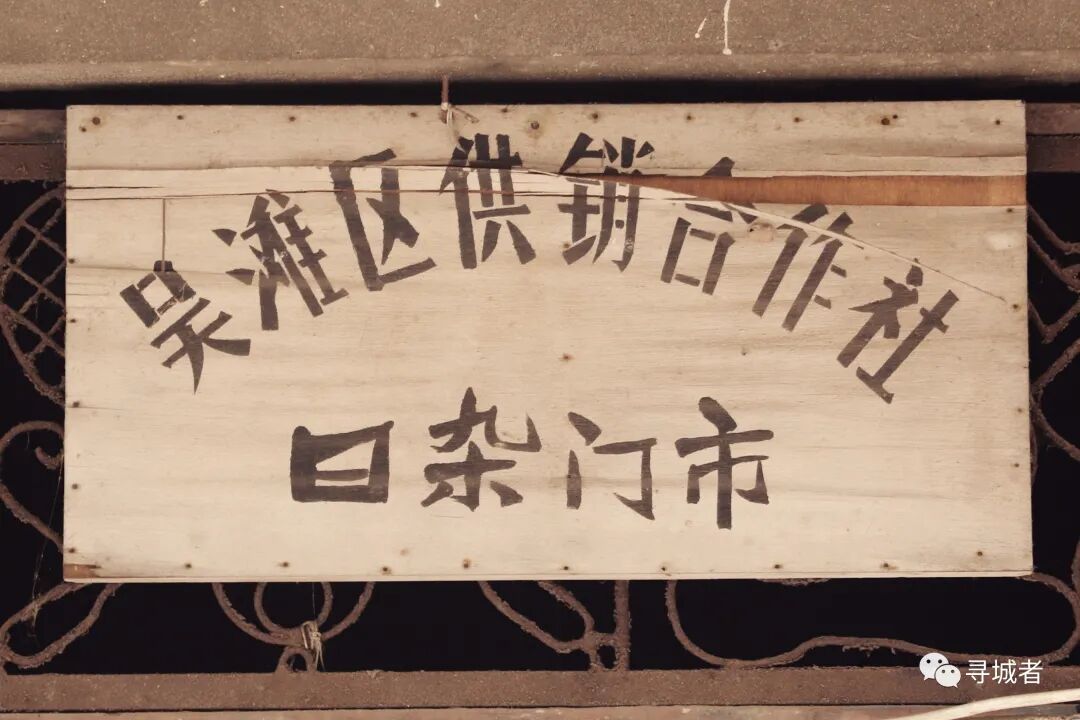 吴滩区供销合作社
日杂门市
寻城者